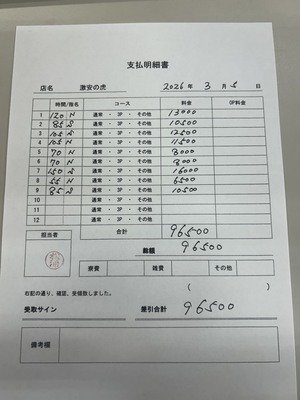 支払明細書
店名 激安の虎 2026年 3月 5日
時間/指名 コース 料金 OP料金
1 120 N 通常 ・ 3P ・ その他 13000
2 85 S 通常 ・ 3P ・ その他 10500
3 105 S 通常 ・ 3P ・ その他 12500
4 105 N 通常 ・ 3P ・ その他 11500
5 70 N 通常 ・ 3P ・ その他 8000
6 70 N 通常 ・ 3P ・ その他 8000
7 150 S 通常 ・ 3P ・ その他 16000
8 55 N 通常 ・ 3P ・ その他 6500
9 85 S 通常 ・ 3P ・ その他 10500
10 通常 ・ 3P ・ その他
11 通常 ・ 3P ・ その他
12 通常 ・ 3P ・ その他
担当者 合計 96500
総額 96500
寮費 雑費 その他
右記の通り、確認、受領致しました。 ( )
受取サイン 差引合計 96500
備考欄